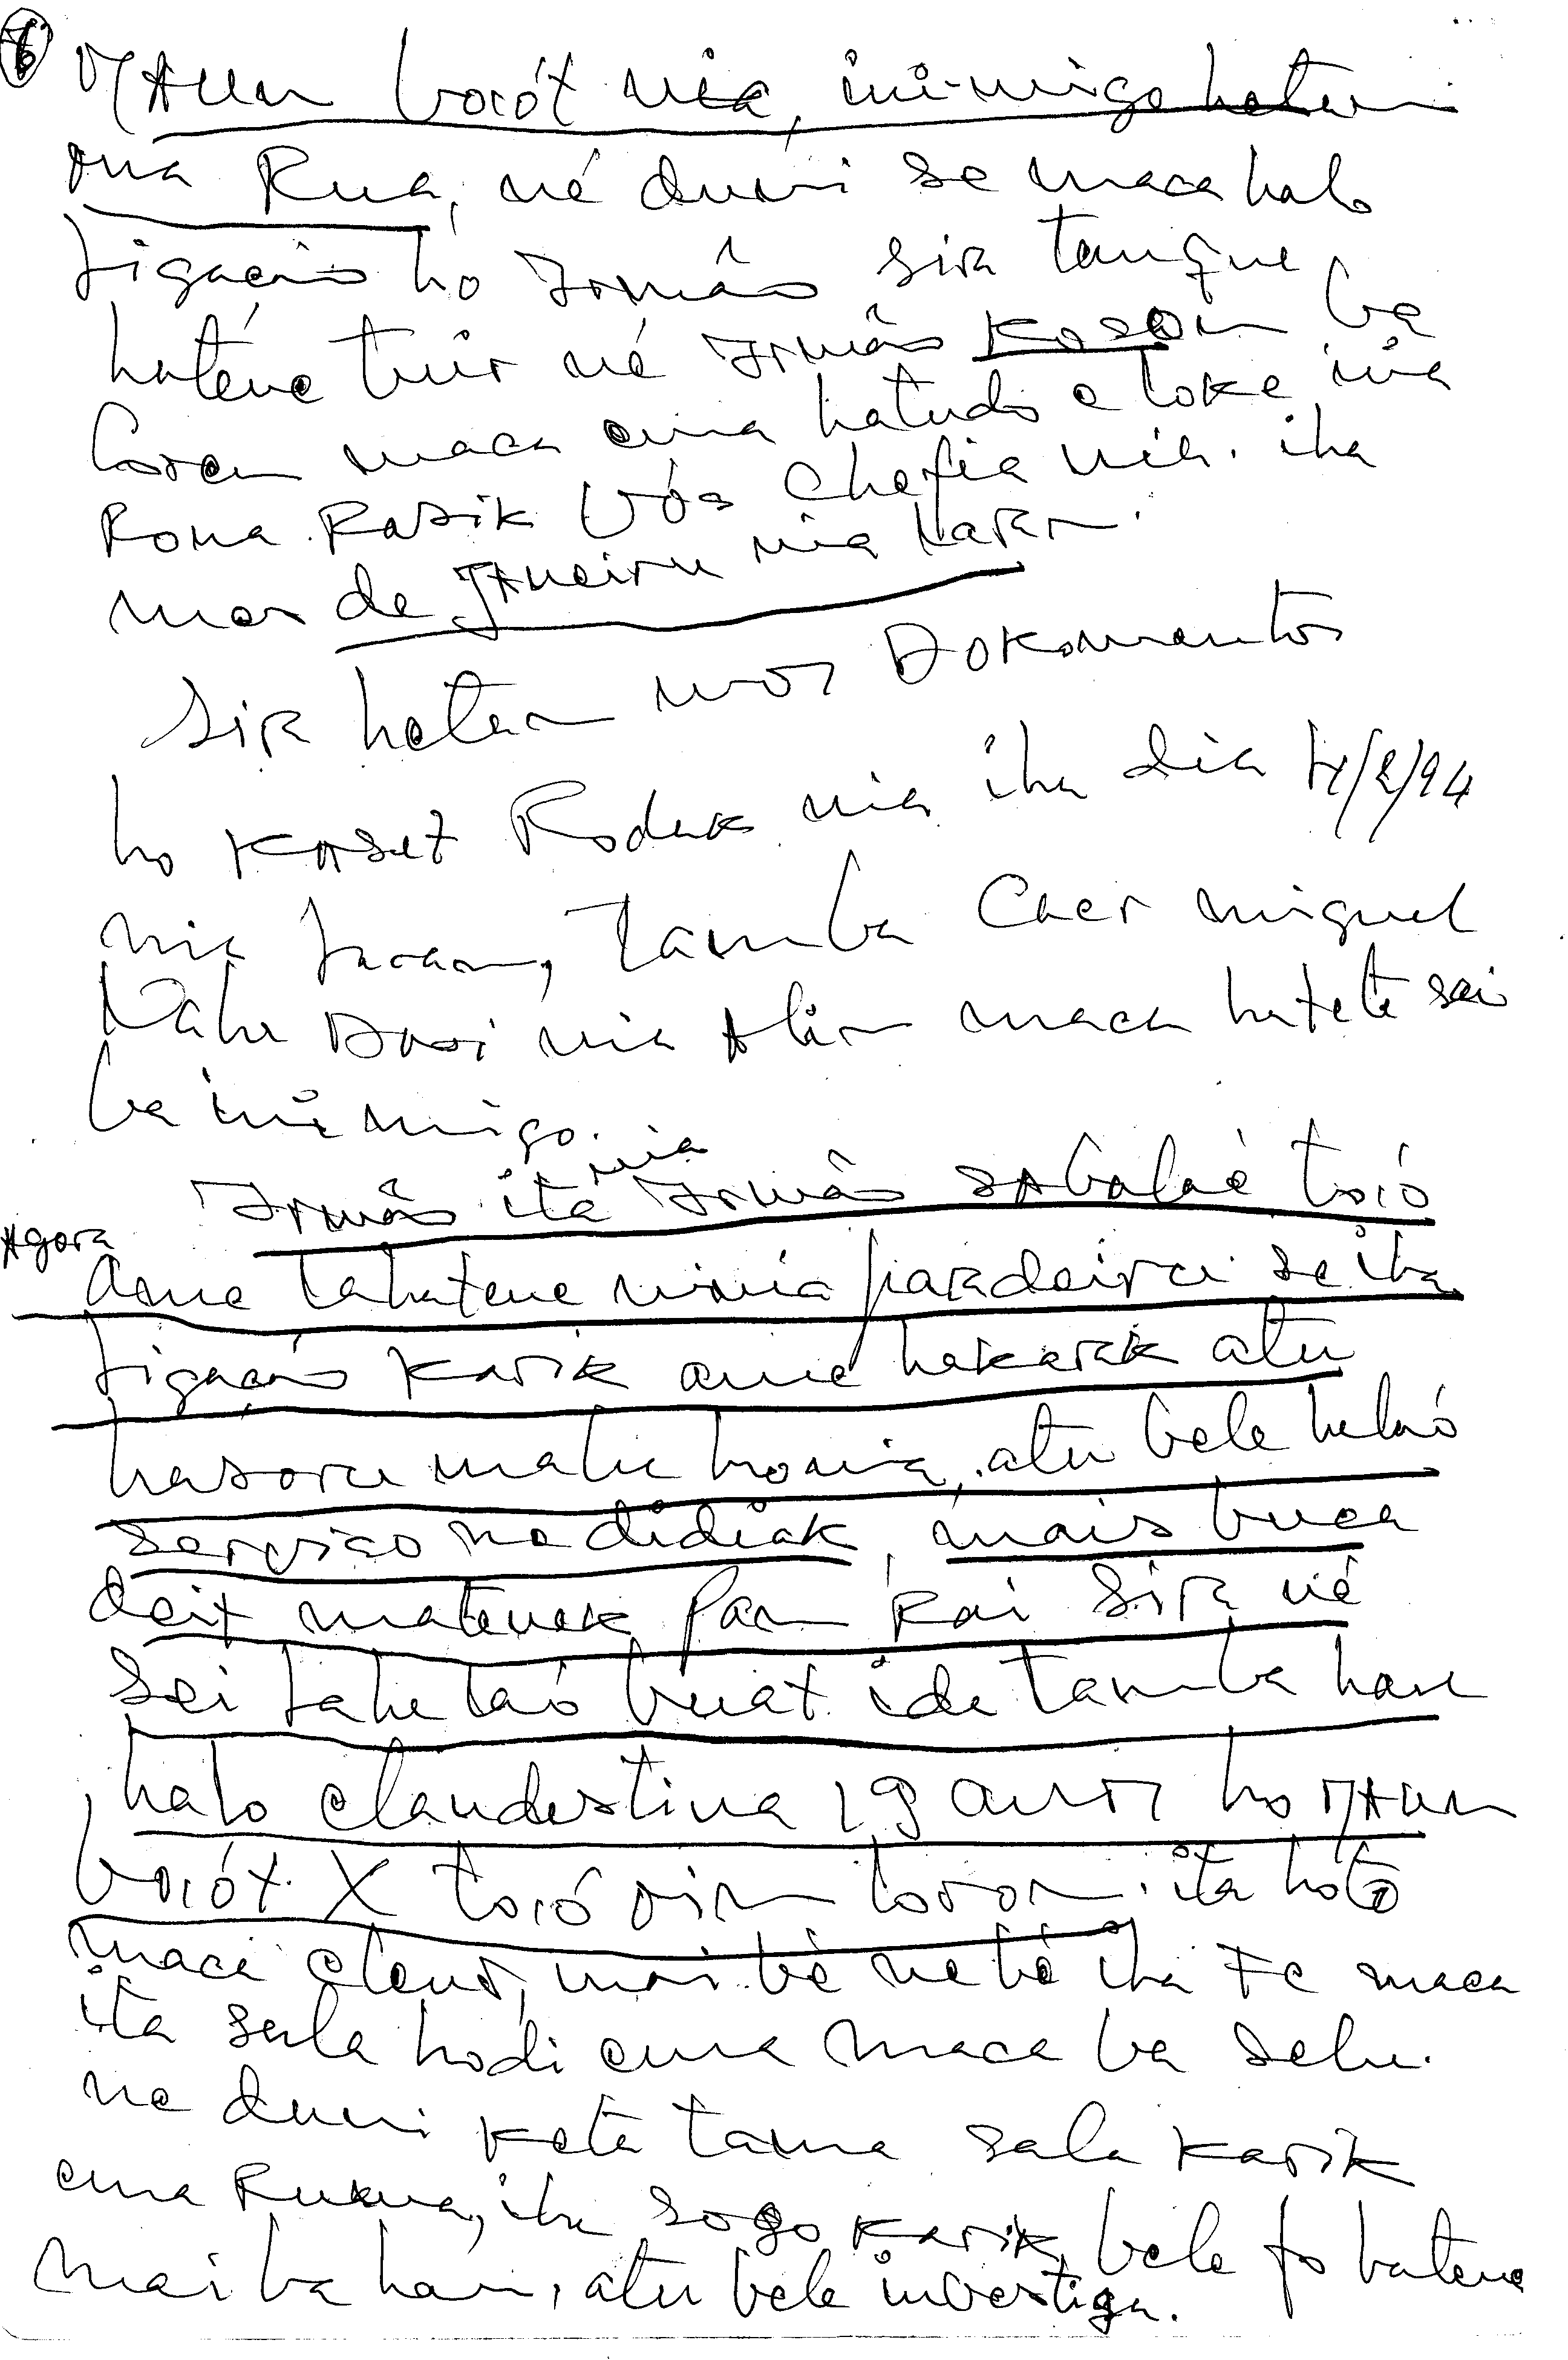 6
MAun boót nia, inimigo hetan
ona Rua, né duni se maca halo
ligação ho Irmão sira tenque
haténe tuir né Irmão ba
maca ema hatudo e loke nia
Roma Rasik Vós Chefia nia. iha
mos de JAneiru nia laran.
sira hetan mos Dokomentos
ho KAset Rodak nia iha dia /2/94
nia laran, Tamba Caer miguel
nia Alin maca hatete sai
ba inimigo.
Irmão ita nia Irmão sAbalaé toió
Agora
ame lahatene ninia paradeiru se iha
ligação karik ame hakarak atu
hasoru malu honia, atu bele halaó
serviço ne didiak, mais buca
deit matenek Pan Rai Sira né
sei lahe laó buat ida Tamba hau
halo clandestina 19 anos ho MAun
boiót X toió oin loron. ita hotо
maca cland, mai bé nebé iha Fc maca
ita sala hodi ema maca ba selu.
ne duni keta tama sala karik
ema Ruma, iha sogo karik, bele fo hatene
mai ba hau, atu bele investiga.